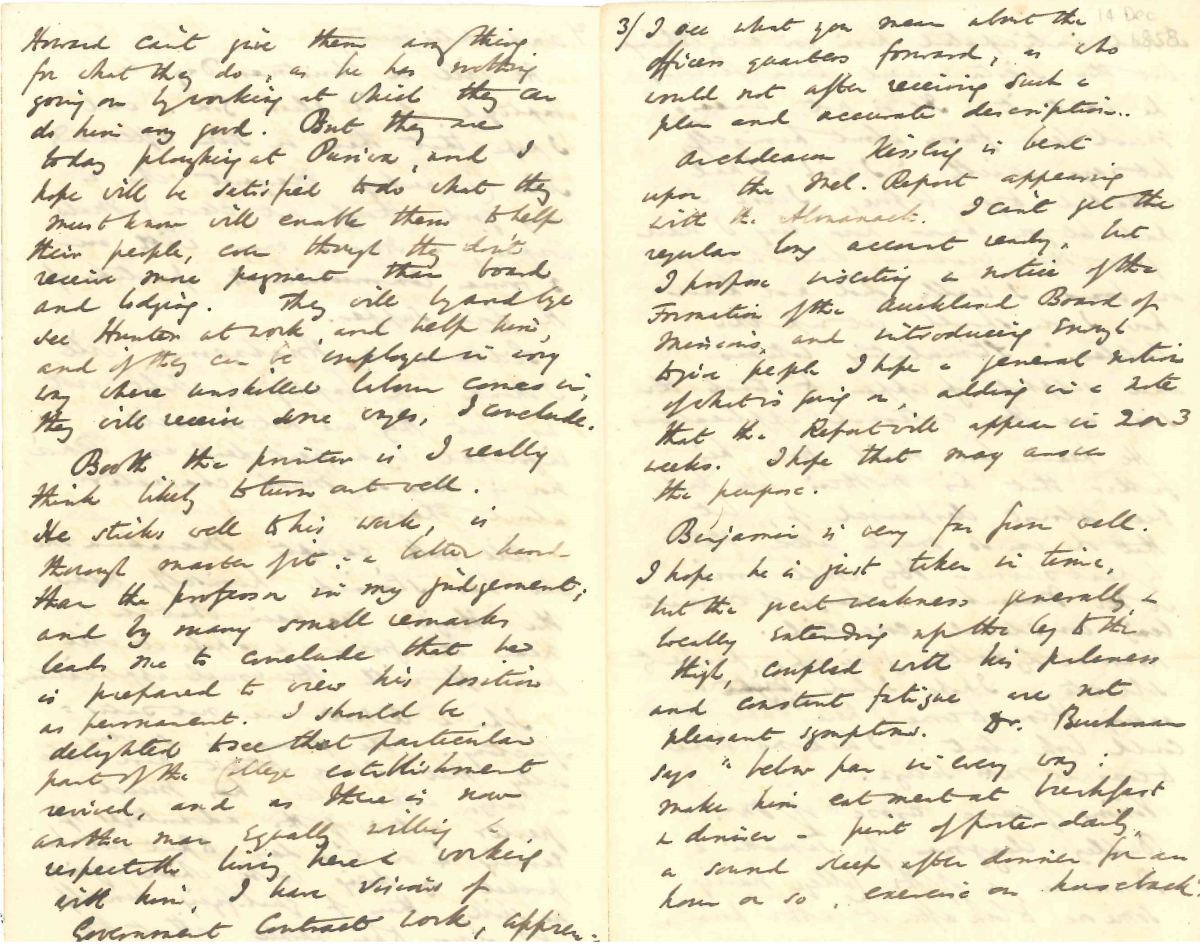 Howard can't give them anything
for what they do, as he has nothing
going on by working at which they can
do him any good. But they are
today ploughing at Purewa, and I
hope will be satisfied to do what they
must know will enable them to help
their people, even though they don't
receive more payment than board
and lodging. They will by and bye
see Hunter at work, and help him,
and if they can be employed in any
way where unskilled labour comes in,
they will receive some wages, I conclude.
Booth the printer is I really
think likely to turn out well.
He sticks well to his work, is
thorough master of it: a better hand
than the professor in my judgement;
and by many small remarks
leads me to conclude that he
is prepared to view his position
as permanent. I should be
delighted to see that particular
part of the College establishment
revived, and as there is now
another man equally willing &
respectable living here & working
with him, I have visions of
Government Contract work, appren-
14 Dec
1858.
3/ I see what you mean about the
officers quarters forward, as who
would not after receiving such a
plan and accurate description..
Archdeacon Kissling is bent
upon the Mel. Report appearing
with the Almanack. I can't get the
regular long account ready, but
I propose inserting a notice of the
Formation of the Auckland Board of
Missions, and introducing enough
to give people I hope a general notion
of what is going on, adding in a note
that the Report will appear in 2 or 3
weeks. I hope that may answer
the purpose.
Benjamin is very far from well.
I hope he is just taken in time,
but the great weakness generally, &
locally extending up the leg to the
thigh, coupled with his paleness
and constant fatigue are not
pleasant symptoms. Dr. Buchanan
says "below par in every way:
make him eat meat at breakfast
& dinner - pint of porter daily,
a sound sleep after dinner for an
hour or so, exercise on horseback"